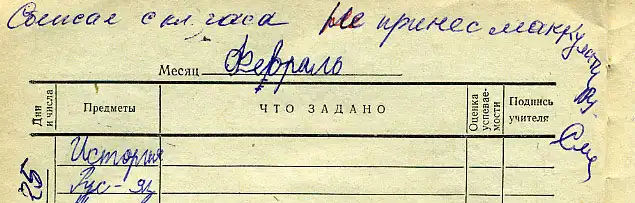 Сбежал с кл. часа Не принес макулатуру.
Месяц Февраль
Дни и числа Предметы ЧТО ЗАДАНО Оценка успеваемости Подпись учителя
25 История
Рус-яз